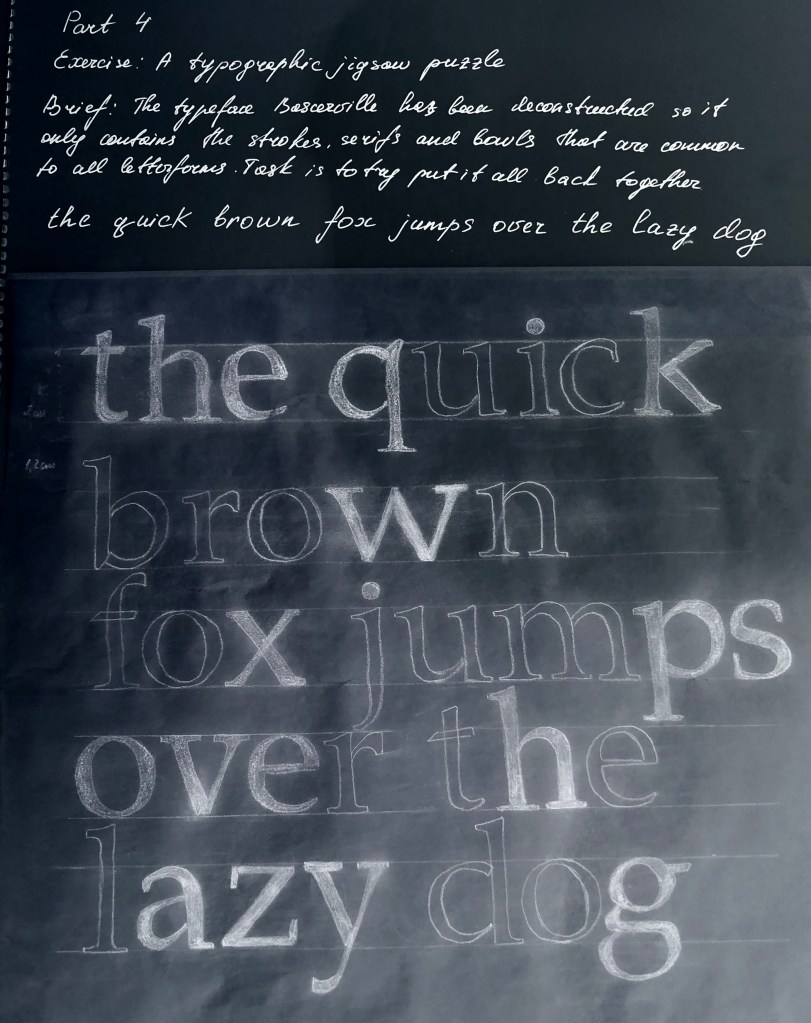 Part 4
Exercise: A typographic jigsaw puzzle
Brief: The typeface Bascerville has been deconstructed so it
only contains the strokes, serifs and bowls that are common
to all letterforms. Task is to try put it all back together
the quick brown fox jumps over the lazy dog
the quick
1,2cm
brown
fox jumps
over the
lazy dog